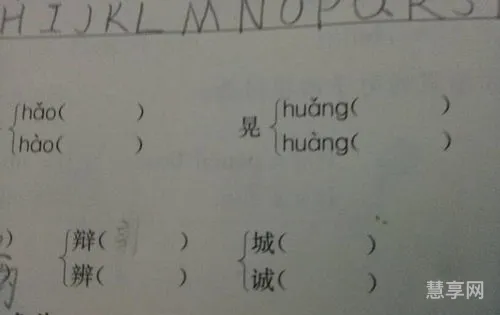 H I J K L M N O P Q R S
hǎo( )
hào( )
晃
huǎng( )
huàng( )
辩( )
辨( )
城( )
诚( )
慧享网